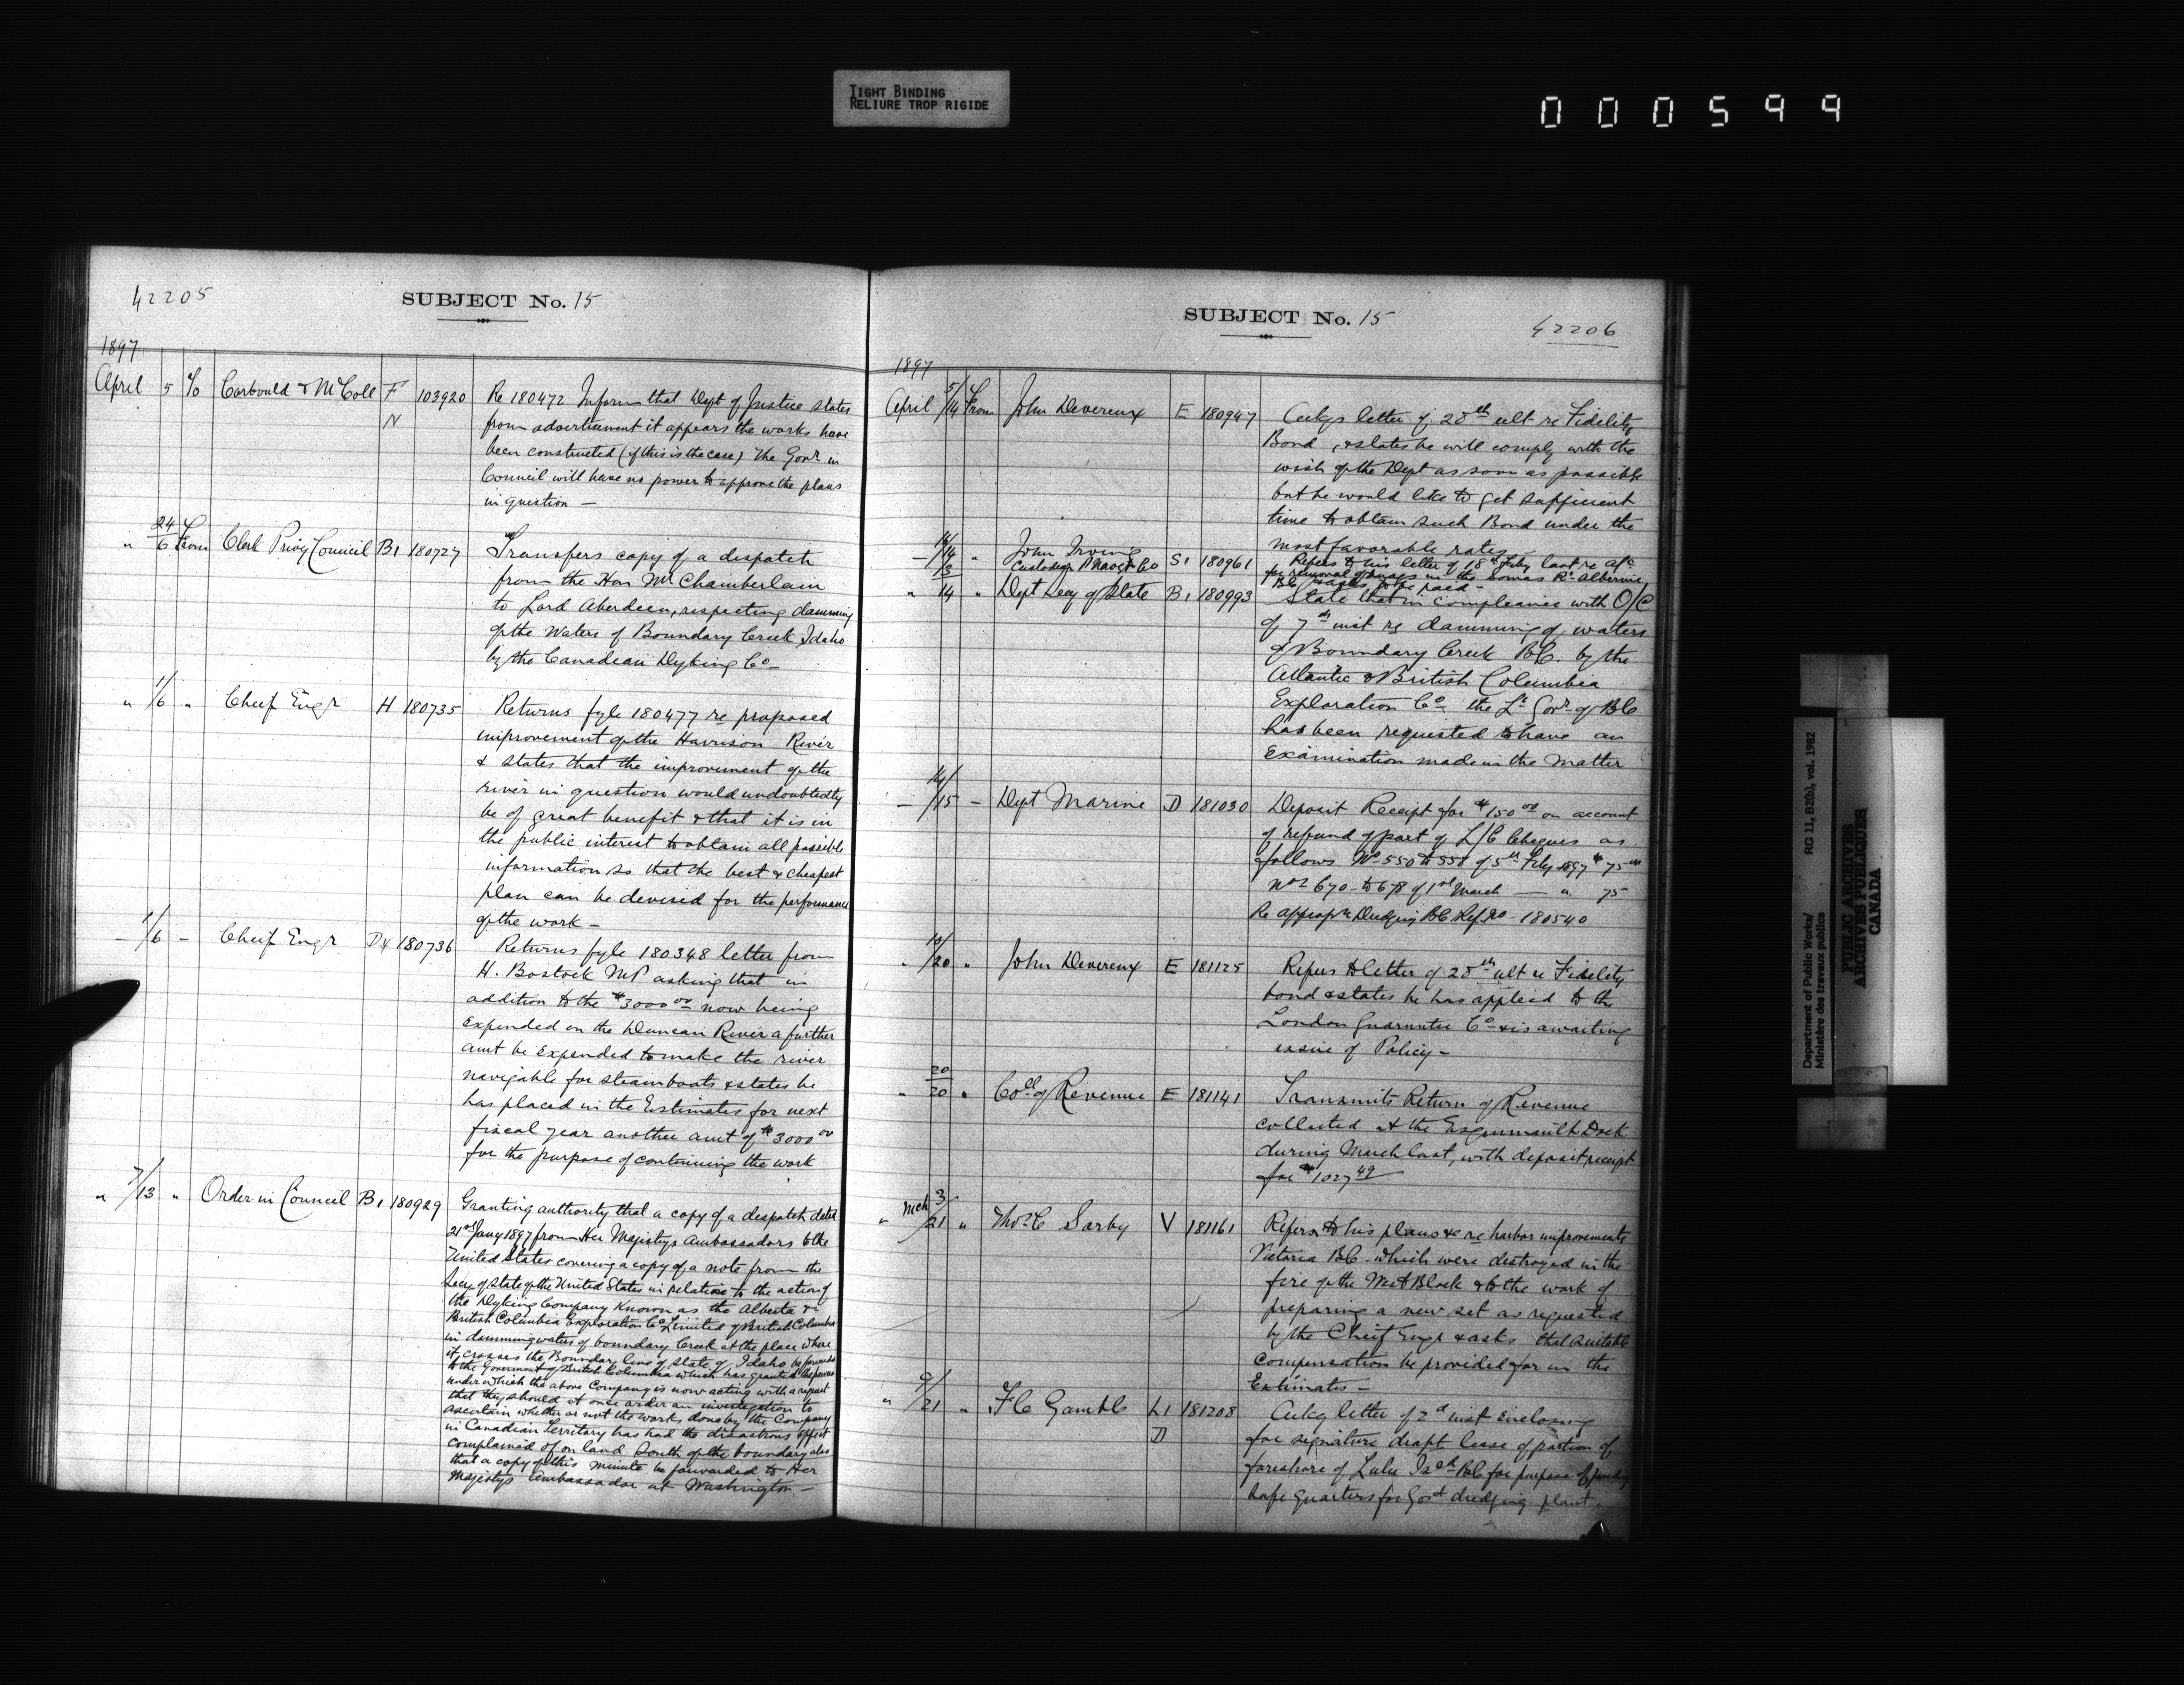 TIGHT BINDING
RELIURE TROP RIGIDE
000599
42205
SUBJECT No. 15
1897
April 5 To Corbould & McColl F 103920 Re 180472 Inform that Dept of Justice states
N from advertisement it appears the works have
been constructed (if this is the case) the Govr in
Council will have no power to approve the plans
in question —
" 24/6 From Clerk Privy Council B1 180727 Transfers copy of a dispatch
from the Hon Mr Chamberlain
to Lord Aberdeen, respecting damming
of the Waters of Boundary Creek, Idaho
by the Canadian Dyking Co —
" 1/6 " Cheif Engr H 180735 Returns fyle 180477 re proposed
improvement of the Harrison River
& states that the improvement of the
river in question would undoubtedly
be of great benefit & that it is in
the public interest to obtain all possible
information so that the best & cheapest
plan can be devised for the performance
of the work —
— 1/6 — Cheif Engr D4 180736 Returns fyle 180348 letter from
H. Bostock MP asking that in
addition to the $3000 00 now being
Expended on the Duncan River a further
amt be Expended to make the river
navigable for steamboats & states he
has placed in the Estimates for next
fiscal year another amt of $3000 00
for the purpose of continuing the work
" 7/13 " Order in Council B1 180929 Granting authority that a copy of a despatch dated
21st Jany 1897 from Her Majestys Ambassadors to the
United States covering a copy of a note from the
Secy of State of the United States in relation to the action of
the Dyking Company Known as the Alberta &
British Columbia Exploration Co Limited of British Columbia
in damming waters of boundary Creek at the place where
it crosses the Boundary line of State of Idaho be forwarded
to the Government of British Columbia which has granted the powers
under which the above Company is now acting with a request
that they should at once order an investigation to
ascertain whether or not the works done by the Company
in Canadian Territory has had the disastrous effect
complained of on land South of the boundary also
that a copy of this minute be forwarded to Her
Majestys Ambassador at Washington —
SUBJECT No. 15
42206
1897
April 5/14 From John Devereux E 180947 Ackgs letter of 28th ult re Fidelity
Bond, & states he will comply with the
wish of the Dept as soon as possible
but he would like to get sufficient
time to obtain such Bond under the
most favorable rates
— 14/14 " John Irving S1 180961 Refers to his letter of 18th Feby last re a/c
for removal of snags in the Somas Rr Alberni
BC & asks to be paid —
" 13/14 " Dept Secy of State B1 180993 State that in compliance with O/C
of 7th inst re damming of waters
of Boundary Creek B.C. by the
Atlantic & British Columbia
Exploration Co the Lt Govr of BC
has been requested to have an
Examination made in the Matter
— 14/15 — Dept Marine D 181030 Deposit Receipt for $150 00 on account
of refund of part of L/C Cheques as
follows No 550 to 558 of 5th Feby 1897 $75 00
Nos 670 to 678 of 1st March — " 75
Re appropn Dredging BC Ref No 180540
" 10/20 " John Devereux E 181125 Refers to letter of 28th ult re Fidelity
bond & states he has applied to the
London Guarantee Co & is awaiting
issue of Policy —
" 20/20 " Coll of Revenue E 181141 Transmits Return of Revenue
collected at the Esquimault Dock
during March last, with deposit receipt
for $1027 49
" Mch 3/21 " Thos C Sorby V 181161 Refers to his plans &c re harbor improvements
Victoria BC which were destroyed in the
fire of the West Block & to the work of
preparing a new set as requested
by the Cheif Engr & asks that suitable
compensation be provided for in the
Estimates —
" 9/21 " F C Gamble L1 181208 Ackg letter of 2d inst Enclosing
D for signature draft lease of portion of
foreshore of Lulu Isld BC for purpose of
safe quarters for Govt dredging plant.
Department of Public Works/
Ministère des travaux publics
RG 11, B2(b), vol. 1982
PUBLIC ARCHIVES
ARCHIVES PUBLIQUES
CANADA